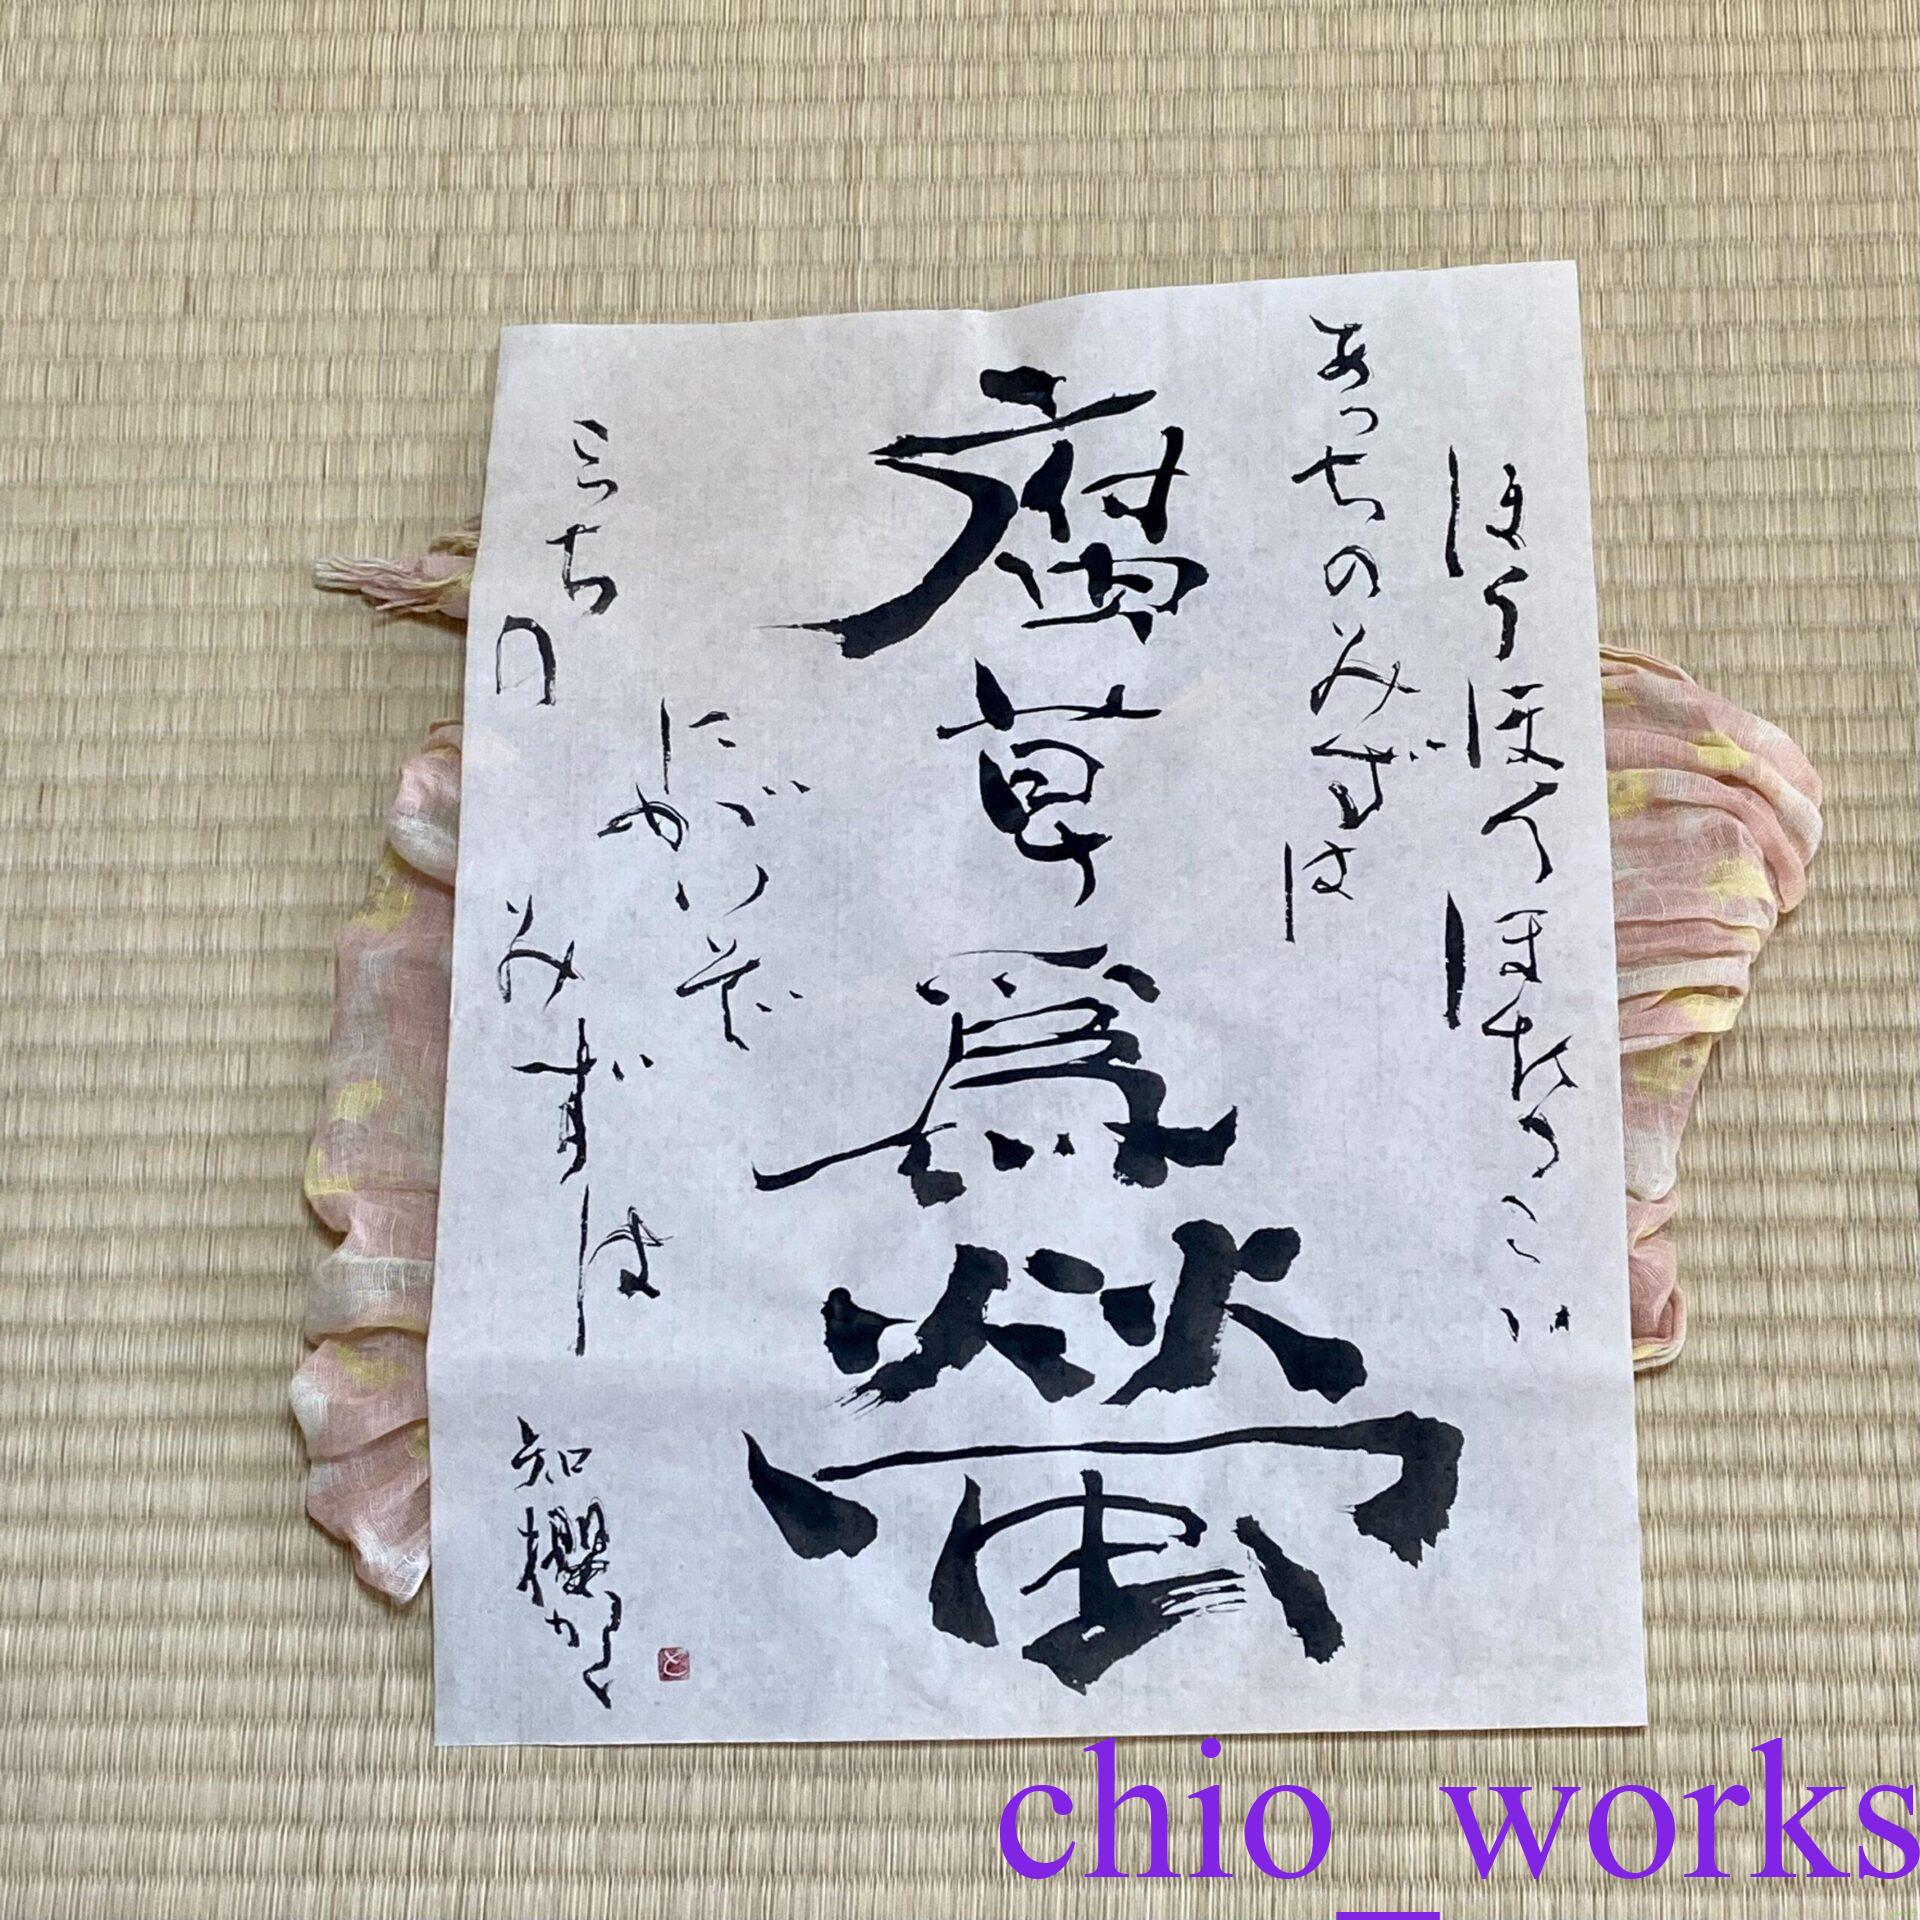 ほうほうほたるこい
あっちのみずは
腐草爲螢
にがいぞ
こっちのみずは
知櫻かく
chio_works